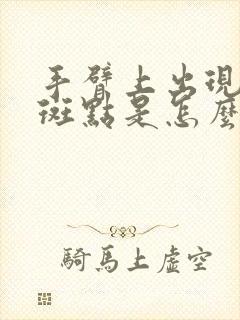 手臂上出現
斑點是怎麼
騎馬上虛空